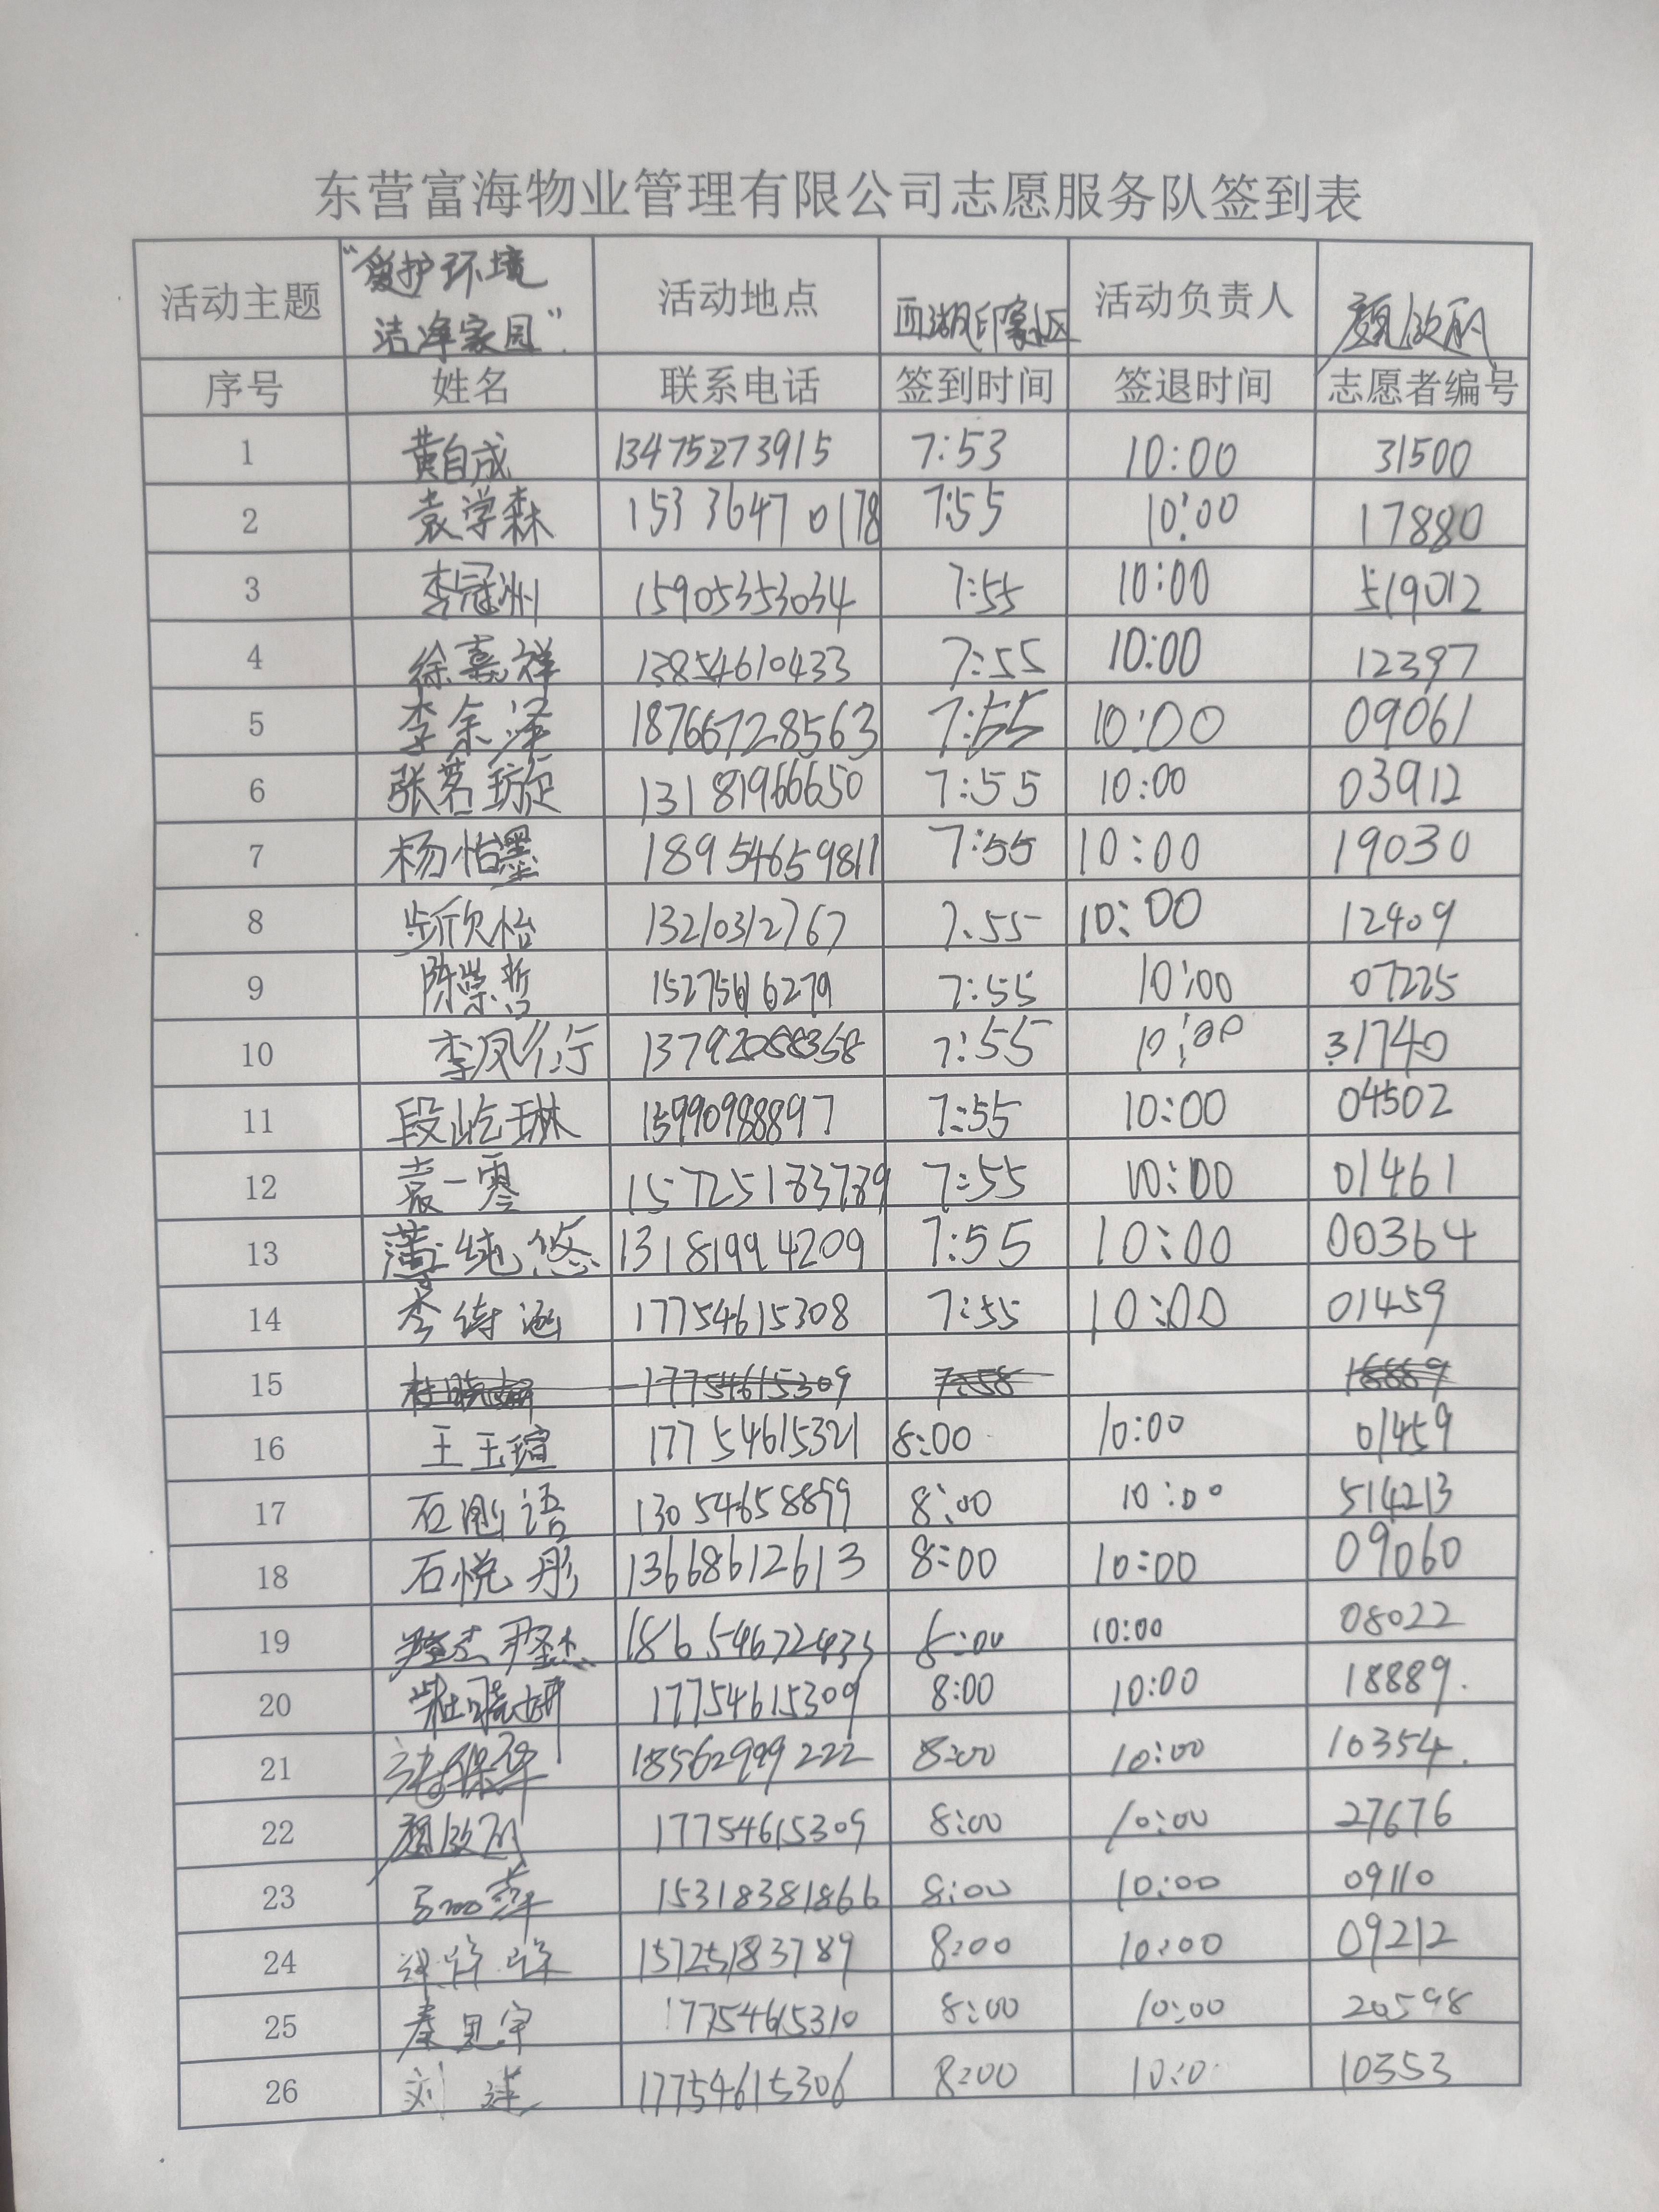 东营富海物业管理有限公司志愿服务队签到表
活动主题 “爱护环境 洁净家园” 活动地点 西湖印象社区 活动负责人
序号 姓名 联系电话 签到时间 签退时间 志愿者编号
1 黄自成 13475273915 7:53 10:00 31500
2 袁学森 15336470178 7:55 10:00 17880
3 李冠洲 15905353034 7:55 10:00 519012
4 徐嘉祥 13854610433 7:55 10:00 12397
5 李余泽 18766728563 7:55 10:00 09061
6 张茗璇 13181966650 7:55 10:00 03912
7 杨怡墨 18954659811 7:55 10:00 19030
8 步欣怡 13210312767 7:55 10:00 12409
9 陈崇哲 7:55 10:00 07225
10 李凤衍 13792088358 7:55 10:00 31740
11 段屹琳 15990988897 7:55 10:00 04502
12 袁一零 7:55 10:00 01461
13 纯悠 13181994209 7:55 10:00 00364
14 李倚涵 17754615308 7:55 10:00 01459
15 杜晓妍 17754615309 7:58 18889
16 王玉瑄 17754615321 8:00 10:00 01459
17 石 语 13054658899 8:00 10:00 514213
18 石悦彤 13668612613 8:00 10:00 09060
19 18654672433 8:00 10:00 08022
20 杜晓妍 17754615309 8:00 10:00 18889.
21 18562999222 8:00 10:00 10354.
22 17754615309 8:00 10:00 27676
23 15318381866 8:00 10:00 09110
24 15725183789 8:00 10:00 09212
25 秦见宇 17754615310 8:00 10:00 20598
26 刘莲 17754615306 8:00 10:0 10353